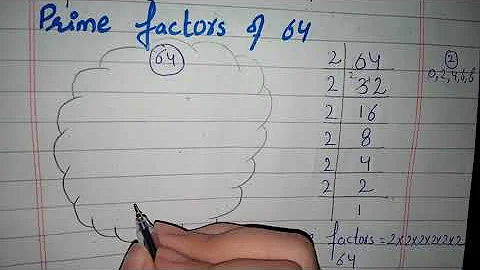 Prime factors of 64
64
2 64
2 32
2 16
2 8
2 4
2 2
1
2
0, 2, 4, 6, 8
factors = 2x2x2x2x2x2
64